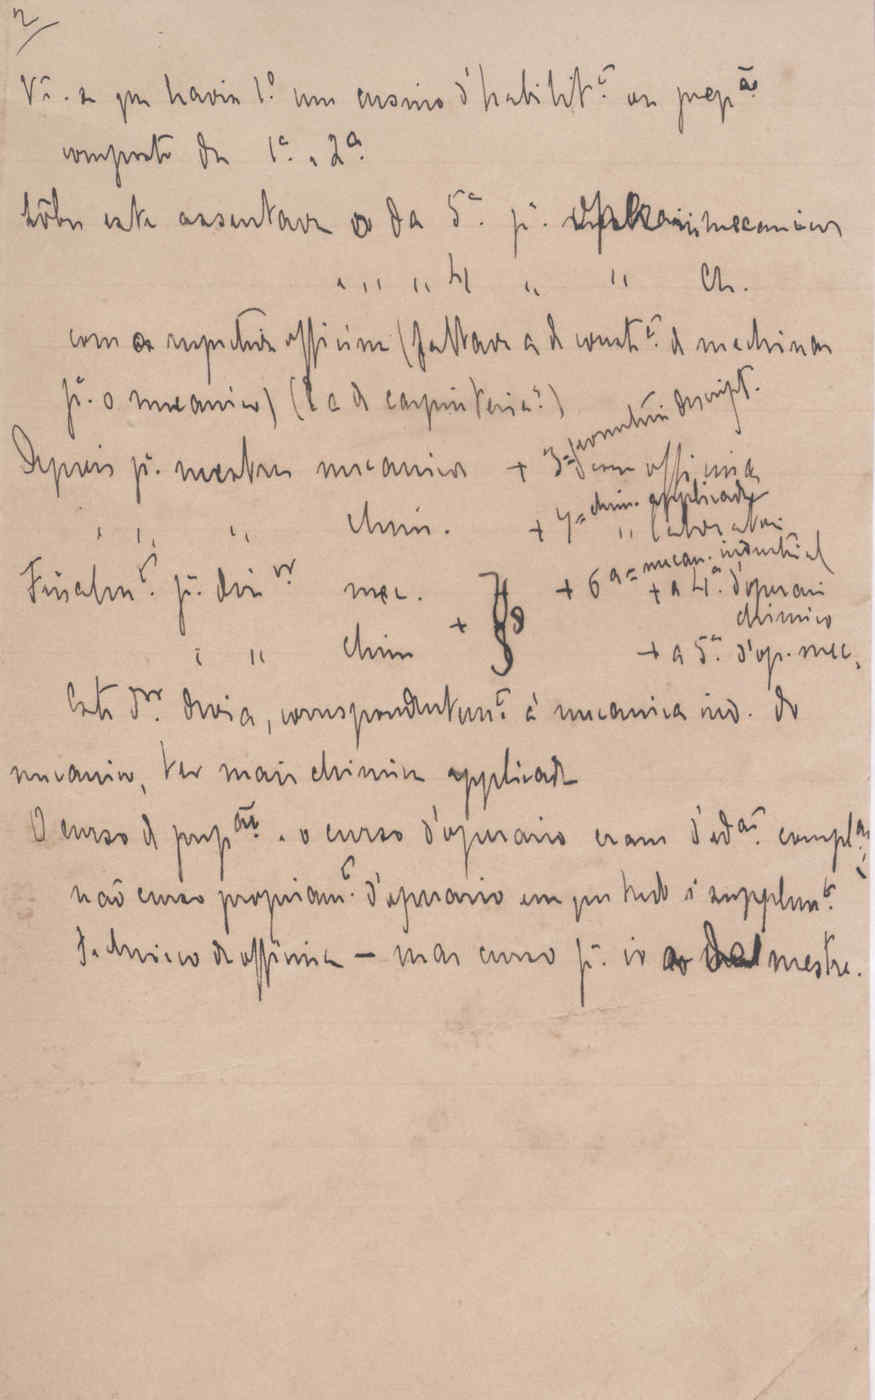 2
Vê-se que havia 1º um ensino d'habilit.º ou prep.ão
composto da 1ª e 2ª
Sôbre este assentava o da 5ª p.ª mecanicos
" " " 4ª " " Ch.
com as respectivas officinas (faltava a de const.º de machinas
p.ª o mecanico) (E a de carpinteria?)
Depois p.ª mestres mecanicos + 3ª geometria descript. com officinas
" " " chim. + 7ª = chim. applicada " laboratori
Finalm.te p.ª dir.or mec. + 8 + 6ª = mecan. industrial + a 4ª d'operari chimico
" " chim + a 5ª d'op. mec.
Este D.or devia, correspondentem.te á mecanica ind. do
mecanico, ter mais chimica applicada
O curso de prep.ão e o curso d'operario eram d'ed.ão compl.ar
não curso propriam.te d'operario em que tudo é supplem.to
technico de officina — mas curso p.ª ir a mestre.